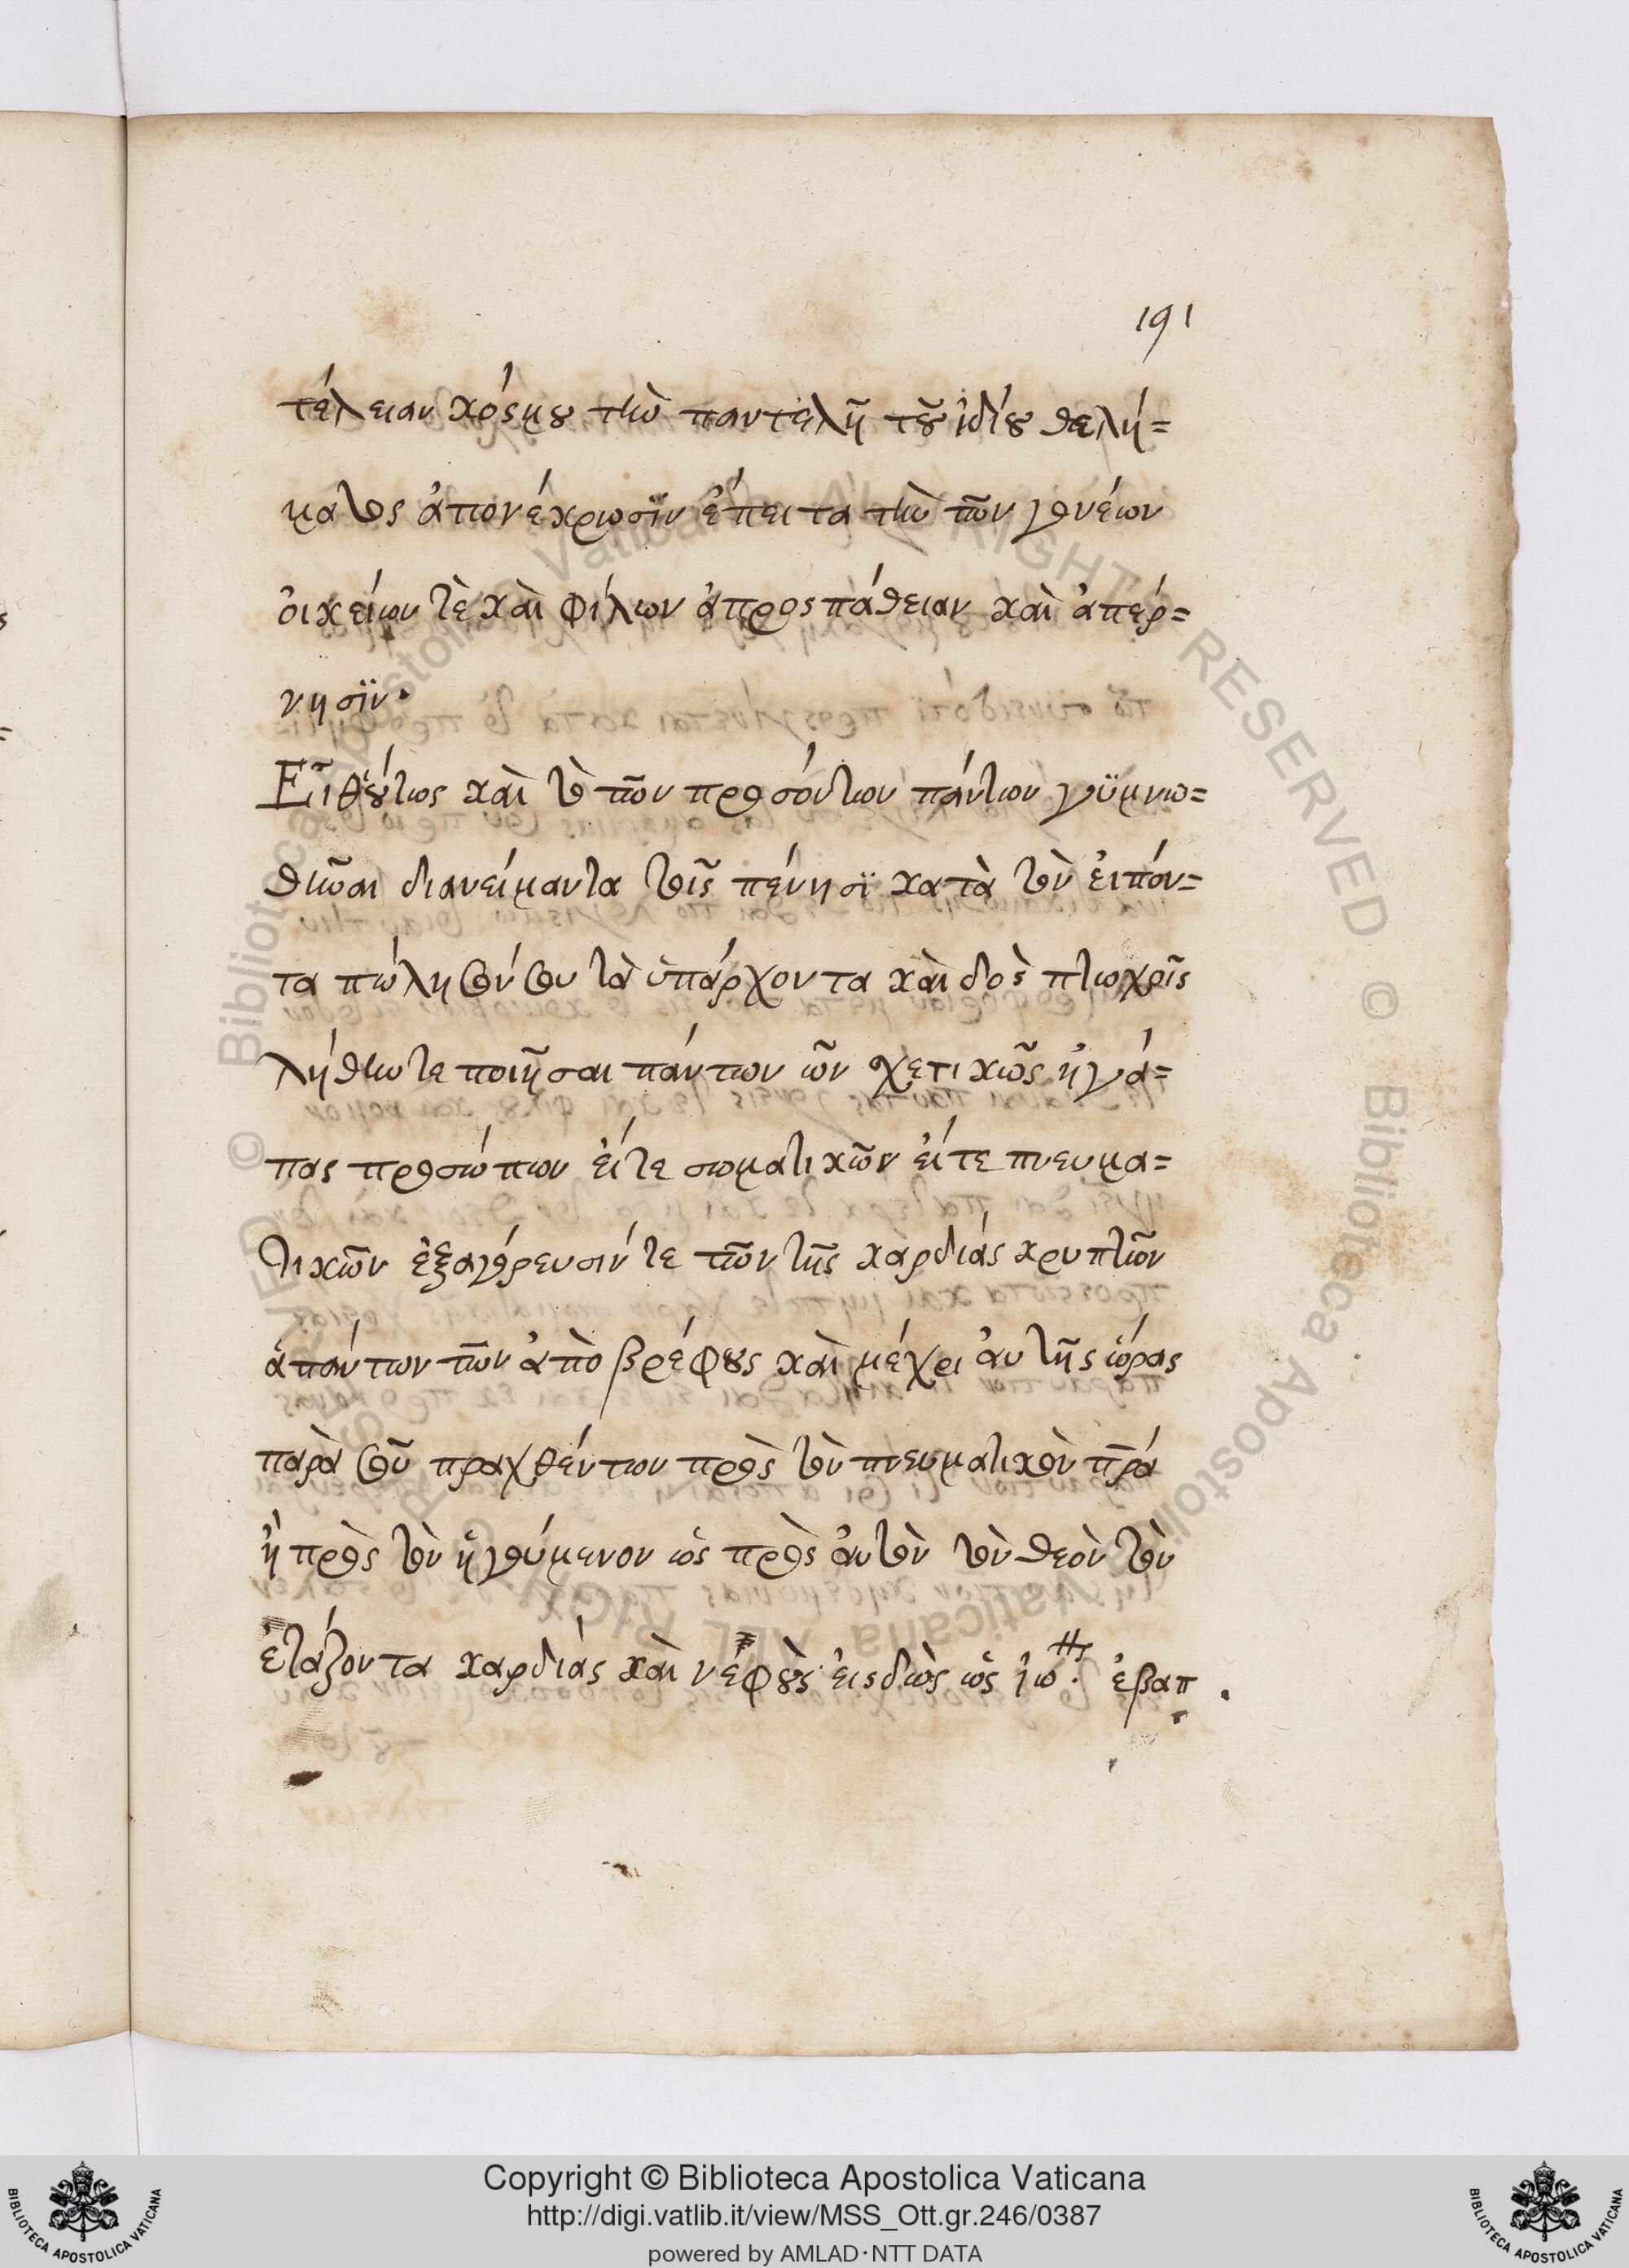 191
τέλειαν κόσμου τὴν παντελῆ τοῦ ἰδίου θελή=
ματος ἀπονέκρωσϊν ἔπειτα τὴν τῶν γονέων
ὀικείων τὲ καὶ φίλων ἀπροσπάθειαν καὶ ἀπάρ=
νησϊν.
Εἶθ' ὅυτως καὶ τὸ τῶν προσόντων πάντων γϋμνω=
θῆναι διανείμαντα τοῖς πένησϊ κατὰ τὸν ἐιπόν=
τα πώλησόν σου τὰ ὑπάρχοντα καὶ δὸς πτωχοῖς
λήθην τε ποιῆσαι πάντων ὧν σχετικῶς ἠγά=
πας προσώπων ἐίτε σωματικῶν ἐίτε πνευμα=
τικῶν ἐξαγόρευσίν τε τῶν τῆς καρδιάς κρυπτῶν
ἁπάντων τῶν ἀπὸ βρέφους καὶ μέχρι ἀυτῆς ὥρας
παρὰ σοῦ πραχθέντων πρὸς τὸν πνευματικὸν πρά
ἢ πρὸς τὸν ἡγούμενον ὡς πρὸς ἀυτὸν τὸν θεὸν τὸν
ἐτάζοντα καρδιάς καὶ νέφροὺς ἐιδὼς ὡς ἰω. ἐβαπ.
Copyright © Biblioteca Apostolica Vaticana
http://digi.vatlib.it/view/MSS_Ott.gr.246/0387
powered by AMLAD·NTT DATA
BIBLIOTECA APOSTOLICA VATICANA
BIBLIOTECA APOSTOLICA VATICANA
© Biblioteca Apostolica Vaticana ALL RIGHTS RESERVED © Biblioteca Apostolica Vaticana ALL RIGHTS RESERVED